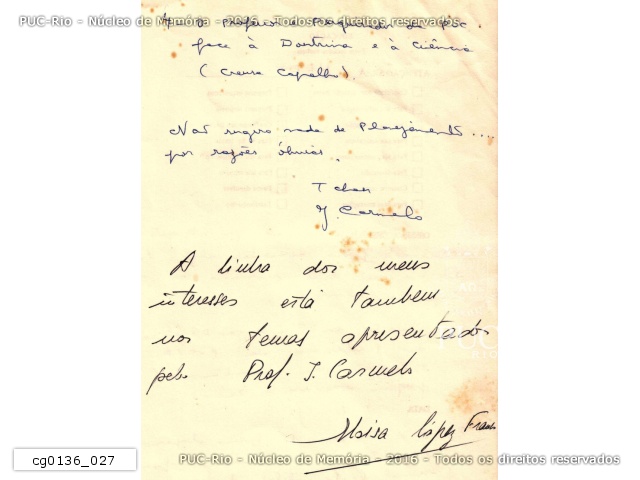 PUC-Rio - Núcleo de Memória - 2016 - Todos os direitos reservados
O Professor e Pesquisador da PUC
face à Doutrina e à Ciência
(Creusa Capalbo).
Não sugiro nada de Planejamento....
por razões óbvias.
Tchau
J. Carmelo
A linha dos meus
interesses está tambem
nos temas apresentados
pelo Prof. J. Carmelo
López Franco
cg0136_027
PUC-Rio - Núcleo de Memória - 2016 - Todos os direitos reservados